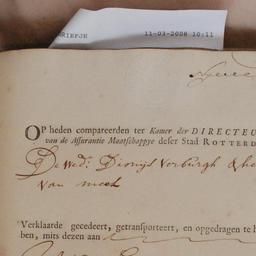 BRIEFJE 11-03-2008 10:11
OP heden compareerden ter Kamer der DIRECTEU
van de Assurantie Maatschappye deser Stad ROTTERD
De Wed: Dionijs Verburgh & he
van meel
Verklaarde gecedeert, getransporteert, en opgedragen te h
ben, mits dezen aan